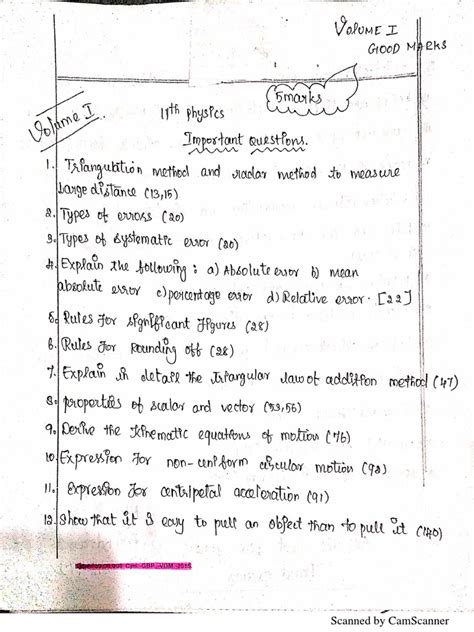 VOLUME I
GOOD MARKS
5marks
Volume I
11th physics
Important Questions.
1. Triangulation method and radar method to measure
large distance (13,15)
2. Types of errors (20)
3. Types of systematic error (20)
4. Explain the following : a) Absolute error b) mean
absolute error c) percentage error d) Relative error. [22]
5. Rules for significant figures (28)
6. Rules for rounding off (28)
7. Explain in detail the triangular law of addition method (47)
8. properties of scalar and vector (53,56)
9. Derive the kinematic equations of motion (76)
10. Expression for non-uniform circular motion (98)
11. Expression for centripetal acceleration (91)
12. Show that it is easy to pull an object than to pull it (140)
Scanned by CamScanner